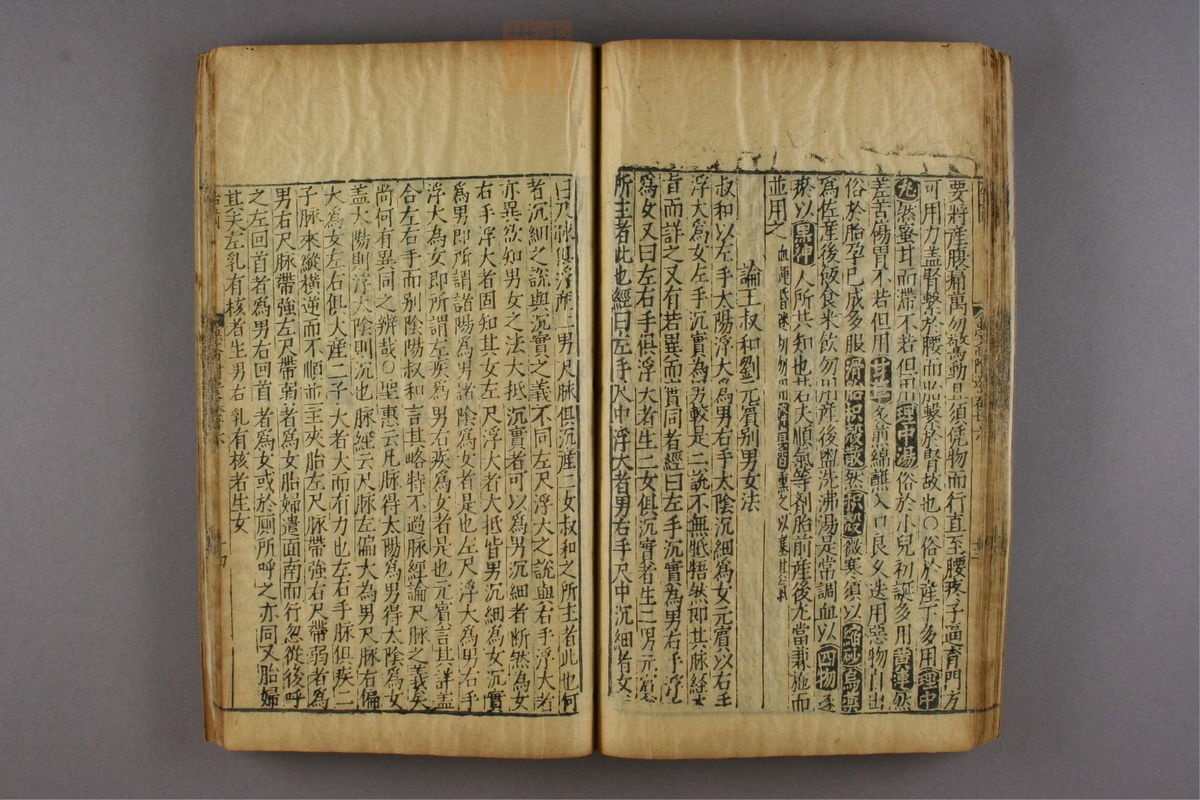 要將産腹痛萬勿驚動且須凭物而行直至腰疼子逼育門方
可用力盖腎繫於腰而胎繫於腎故也○俗於産下多用理中
丸然蜜甘而滯不若但用理中湯俗於小兒利誕多用黄連然
差苦傷胃不若但用甘草炙煎綿蘸入口良久迭用惡物自出
俗於胎孕已成多服滑胎枳殻散然枳殻微寒須以縮砂烏藥
爲佐産後飯食米飲勿用産後盥洗沸湯是常調血以四物逐
瘀以黒神人所共知也若夫順氣等剤胎前産後尤當兼施而
並用之
論王叔和劉元賓别男女法
叔和以左手太陽浮大爲男右手太陰沉細爲女元賓以右手
浮大爲女左手沉實為男較是二説不無牴牾然即其脉經本
㫖而詳之又有若異而實同者經曰左手沉實為男右手浮大
為女又曰左右手俱浮大者生二女俱沉實者生二男元賓
所主者此也經曰左手尺中浮大者男右手尺中沉細者女
又曰尺脉俱浮産二男尺脉俱沉産二女叔和之所主者此也何
者沉細之説與沉實之義不同左尺浮大之説與右手浮大者
亦異欲知男女之法大抵沉實者可以爲男沉細者断然為女
右手浮大者固知其女左尺浮大者大抵皆男沉細為女沉實
爲男即所謂諸陽爲男諸陰爲女者是也左尺浮大爲男右手
浮大為女即所謂左疾爲男右疾爲女者是也元賓言其詳盖
合左右手而别陰陽叔和言其略特不過脉經論尺脉之義矣
尚何有異同之辨哉○聖惠云凡脉得太陽爲男得太陰為女
盖太陽則浮太陰則沉也脉經云尺脉左偏大為男尺脉右偏
大為女左右俱大産二子大者大而有力也左右手脉俱疾二
子脉來縱横逆而不順並主夾胎左尺脉帶強右尺帶弱者爲
男右尺脉帶強左尺帶弱者為女胎婦遣面南而行忽從後呼
之左回首者爲男右回首者為女或於厠所呼之亦同又胎婦
其夫左乳有核者生男右乳有核者生女